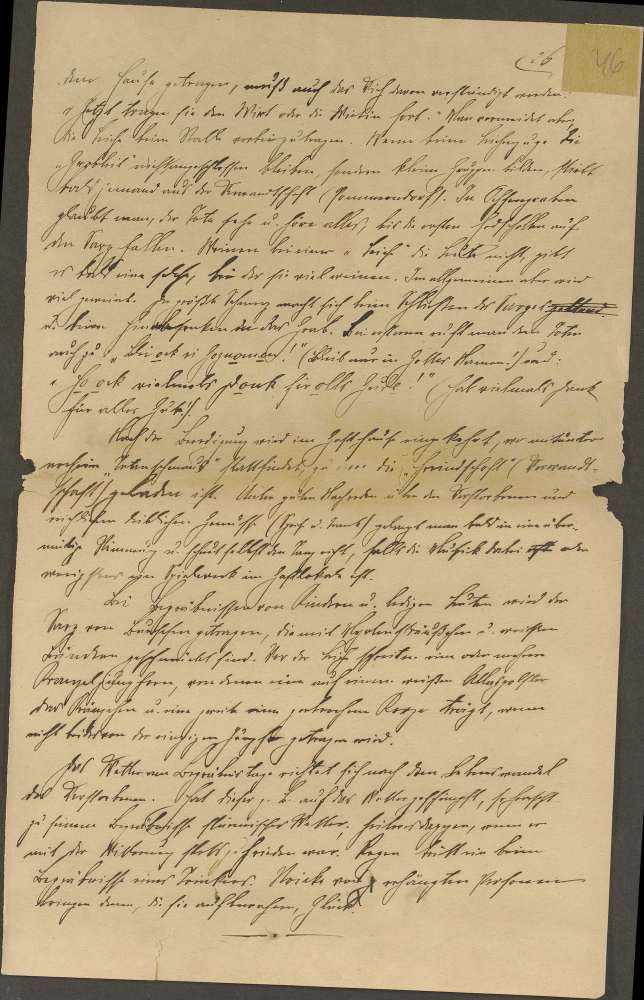 26
46
dem Hause getragen, muß auch das Vieh davon verständigt werden:
"Jetzt tragen sie den Wirt oder die Wirtin fort." Man vermeidet aber,
die Leiche beim Stalle vorbeizutragen. Wenn beim Leichenzuge die
nicht angeschlossen bleiben, sondern kleine Gruppen bilden, stirbt
bald jemand aus der Verwandtschaft (Pommerndorf). In Ochsengraben
glaubt man, der Tote sehe u. höre alles, bis die ersten Erdschollen auf
den Sarg fallen. Weinen bei einer "Leich" die Leute nicht, gibt
es bald eine solche, bei der sie viel weinen. Im allgemeinen aber wird
viel geweint. Der größte Schmerz macht sich beim Schließen des Sarges
u. beim Hinabsenken in das Grab. Bei ersterem ruft man dem Toten
auch zu "Blei ock ei Gojnoman!" (Bleib nur in Gottes Namen!) und:
"Ho ock vielmols Donk fir olls Gude!" (Hab vielmals Dank
für alles Gute!).
Nach der Beerdigung wird im Gasthause eingekehrt, wo mitunter
noch ein "Totenschmaus" stattfindet, zu dem die "Freindschoft" (Verwandt-
schaft) geladen ist. Unter guten Nachreden über den Verstorbenen und
reichlichen leiblichen Genüssen (Speis u. Trank) gelangt man bald in eine über-
mütige Stimmung u. scheut selbst den Tanz nicht, falls die Musik dabei oder
wenigstens ein Spielwerk im Gastlokale ist.
Bei Begräbnissen von Kindern u. ledigen Leuten wird der
Sarg von Burschen getragen, die mit Myrtensträußchen u. weißen
Bändern geschmückt sind. Vor der Leiche schreiten eine oder mehrere
Kranzeljungfern, von denen eine auf einem weißen Atlaspolster
das Kränzchen u. eine zweite eine gebrochene Kerze trägt, wenn
nicht beides von der einzigen Jungfer getragen wird.
Das Wetter am Begräbnistage richtet sich nach dem Lebenswandel
des Verstorbenen. Hat dieser z. B. auf das Wetter geschimpft, so herrscht
zu seinem Begräbnisse stürmisches Wetter, heiteres dagegen, wenn er
mit der Witterung stets zufrieden war. Regen tritt ein beim
Begräbnisse eines Trinkers. Stricke von erhängten Personen
bringen denen, die sie aufbewahren, Glück.